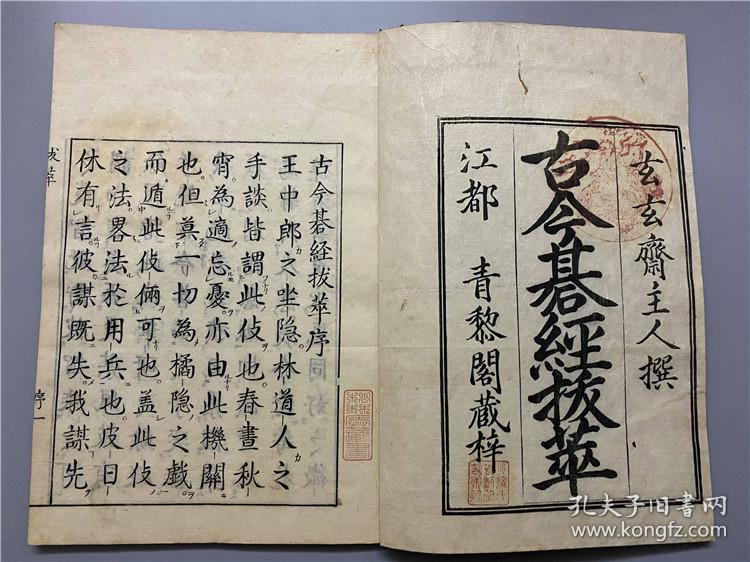 玄玄齋主人撰
古今碁經拔萃
江都 青黎閣藏梓
古今碁經拔萃序
王中郎之坐隐林道人之
手談皆謂此伎也春晝秋
宵為適忘憂亦由此機關
也但莫一切為橘隐之戲
而遁此伎倆可也盖此伎
之法畧法於用兵也皮日
休有言彼謀既失我謀先
拔萃
序一
孔夫子旧书网
www.kongfz.com